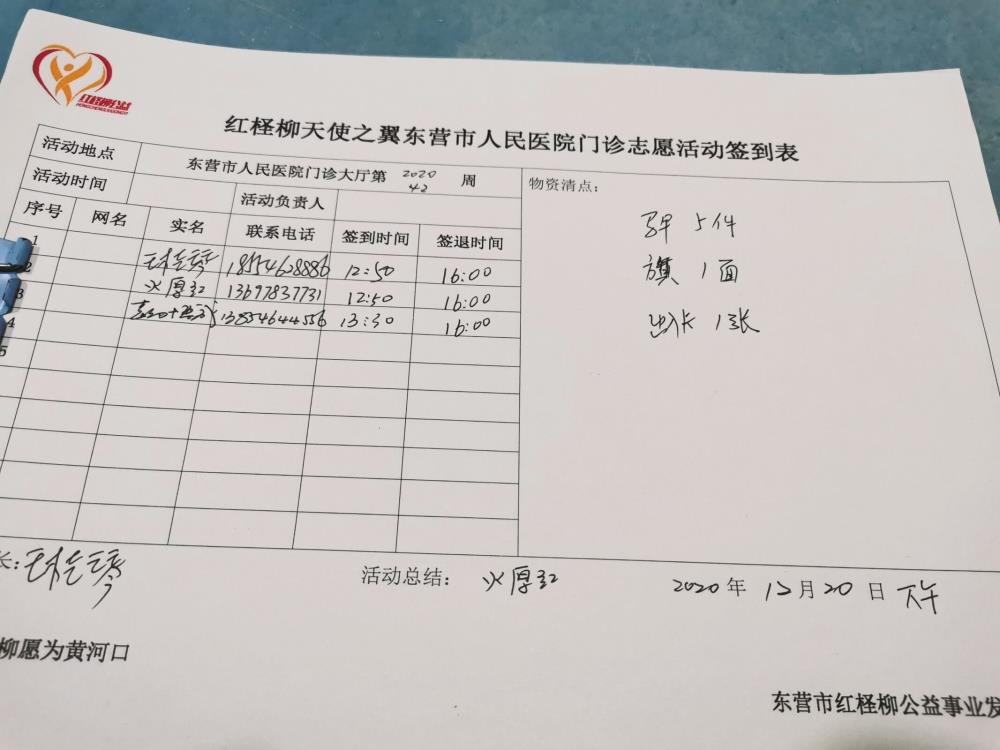 红柽柳公益
红柽柳天使之翼东营市人民医院门诊志愿活动签到表
活动地点 东营市人民医院门诊大厅第 2020 42 周
物资清点：
活动时间 活动负责人
序号 网名 实名 联系电话 签到时间 签退时间
1 18554628886 12:50 16:00
2 厚 13697837731 12:50 16:00
3 13854644556 13:30 16:00
4
5
5件
旗 1面
出入卡 1张
长：
活动总结： 厚
2020 年 12 月 20 日 下午
柳愿为黄河口
东营市红柽柳公益事业发